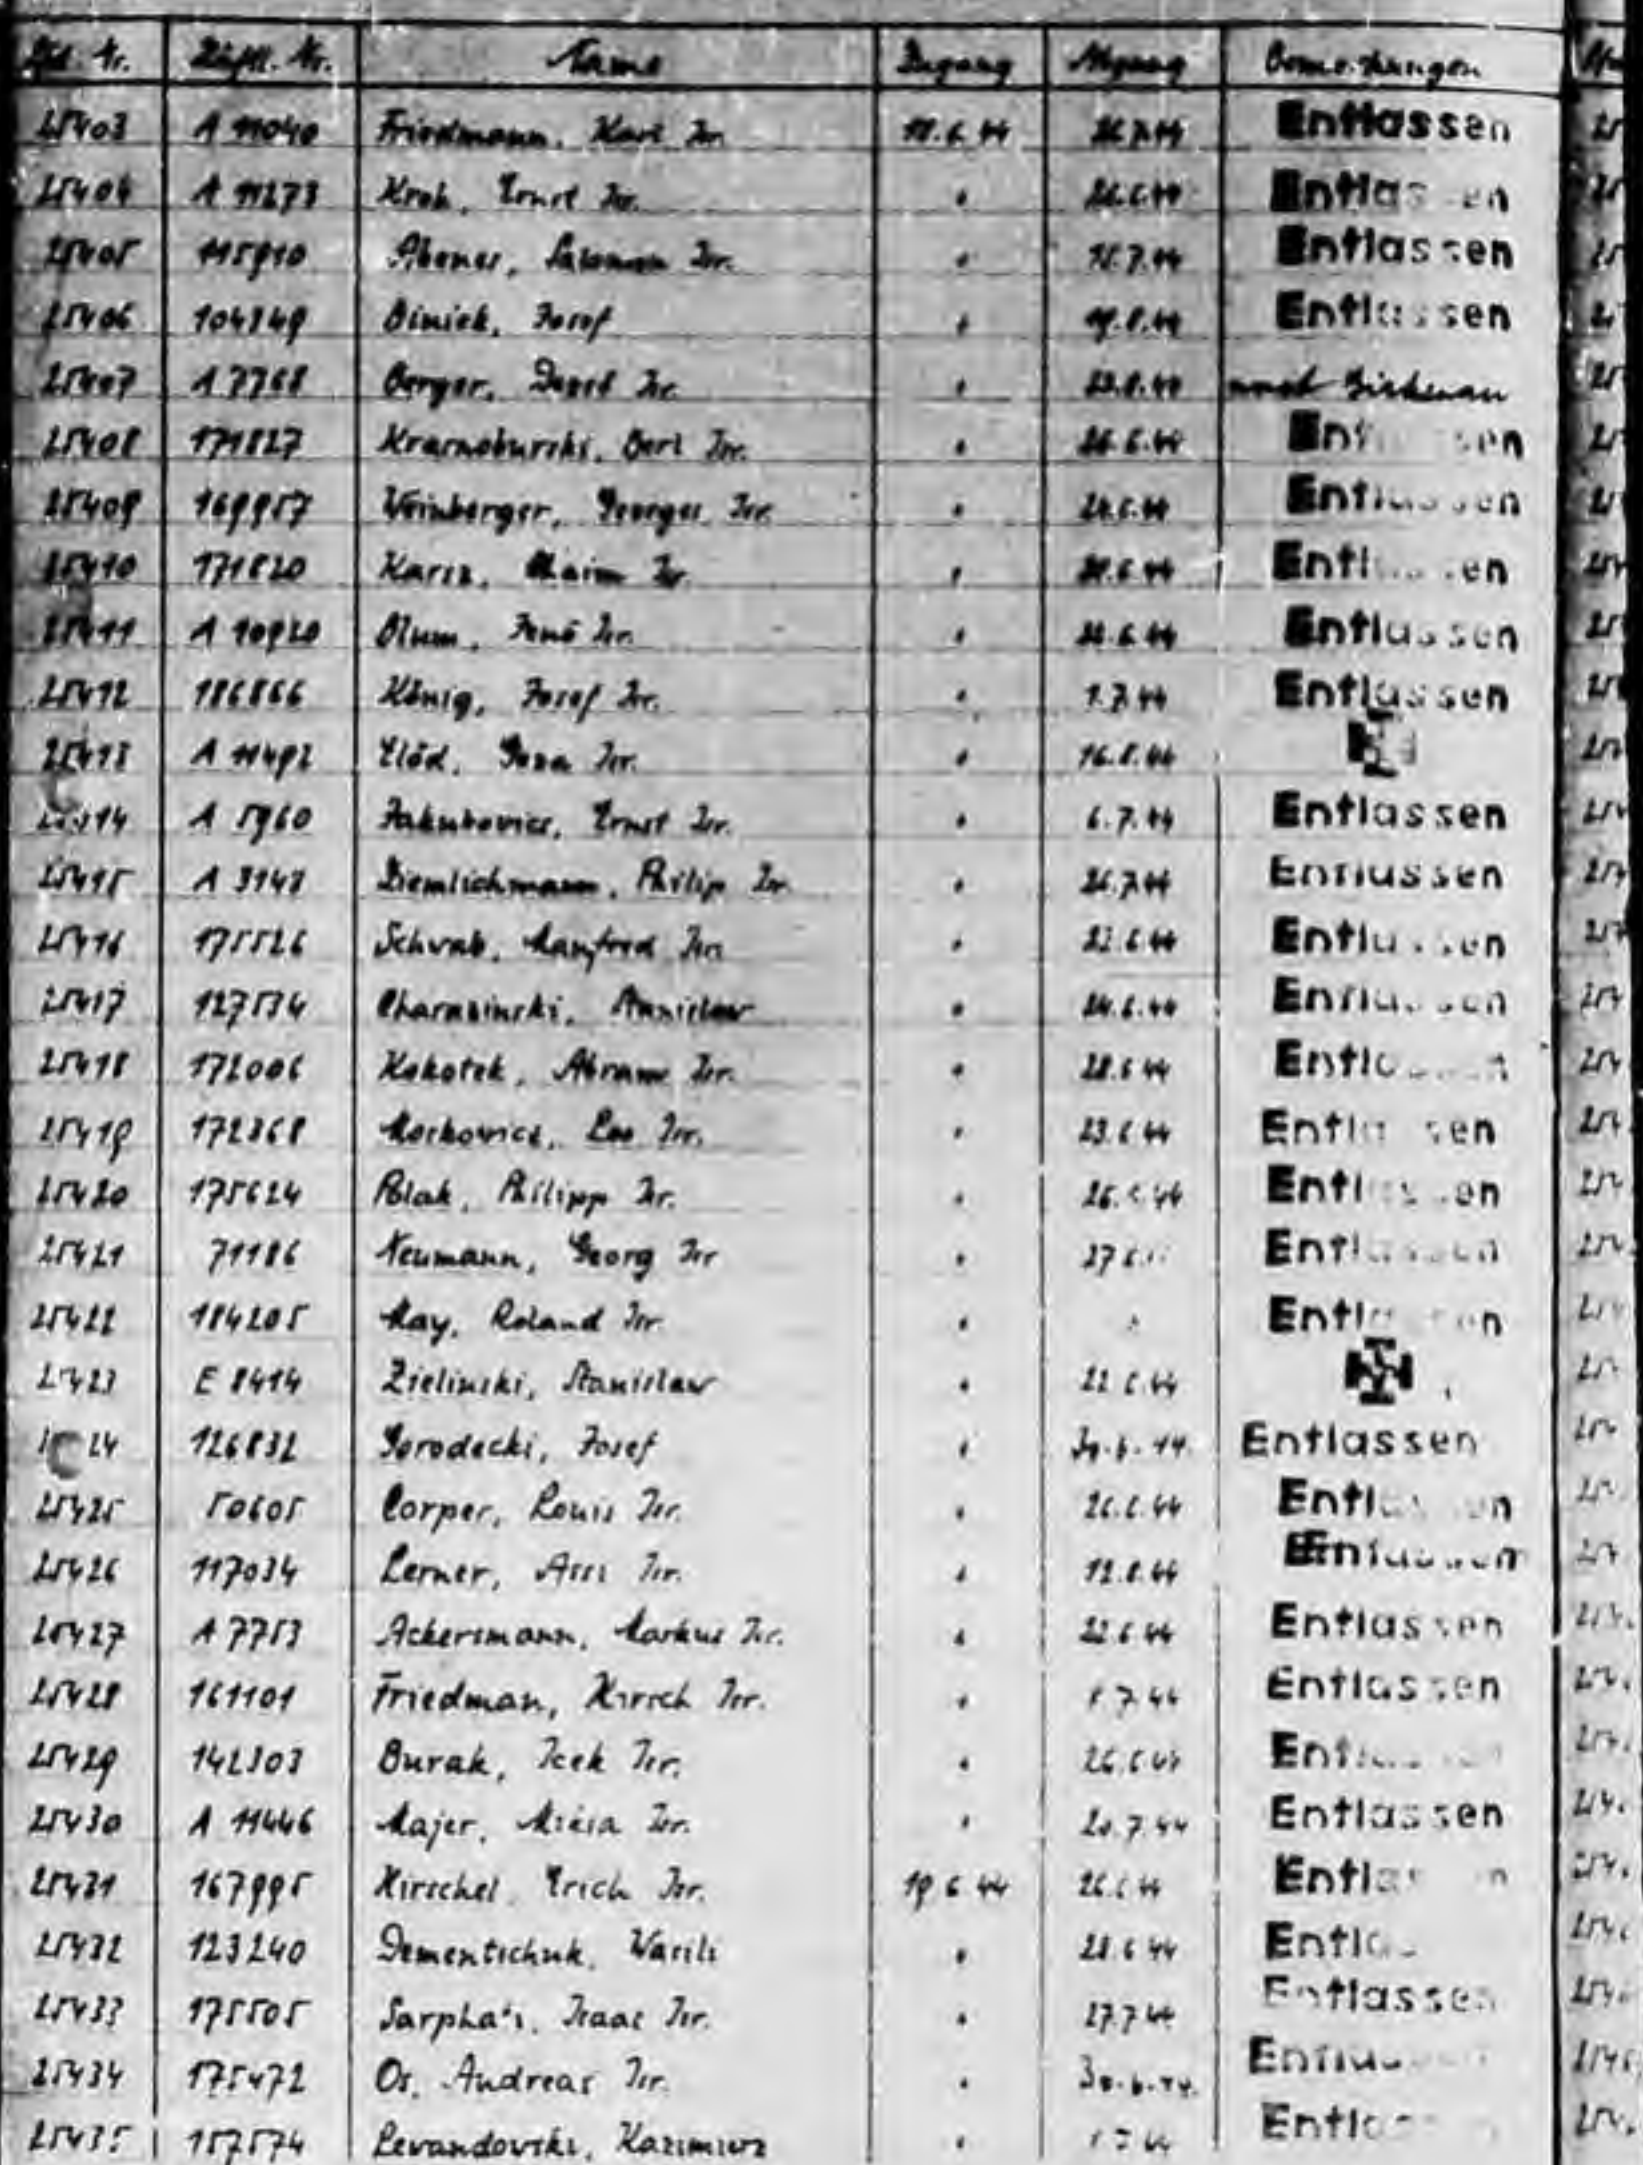 Lfd. Nr. Häftl. Nr. Name Zugang Abgang Bemerkungen
25403 A 11040 Friedmann, Karl Isr. 18.6.44 26.7.44 Entlassen
25404 A 11273 Kroh, Ernst Isr. " 26.6.44 Entlassen
25405 115910 Salomon Isr. " 18.7.44 Entlassen
25406 104349 Biniek, Josef " Entlassen
25407 A 7768 Berger, David Isr. " 23.8.44 nach Birkenau
25408 171827 Krarnoburski, Berl Isr. " 26.6.44 Entlassen
25409 169957 Weinberger, Georges Isr. " 24.6.44 Entlassen
25410 171820 Karsz, Chaim Isr. " Entlassen
25411 A 10920 Blum, Jenö Isr. " Entlassen
25412 186866 König, Josef Isr. " 1.7.44 Entlassen
25413 A 11492 Elöd, Geza Isr. " 16.8.44
25414 A 5960 Jakubovics, Ernst Isr. " 6.7.44 Entlassen
25415 A 3148 Diemlichmann, Philip Isr. " 26.7.44 Entlassen
25416 175526 Schwab, Manfred Isr. " 22.6.44 Entlassen
25417 127534 Charasinski, Stanislaw " 24.6.44 Entlassen
25418 172006 Kokotek, Abram Isr. " 28.6.44 Entlassen
25419 172368 Moskovics, Leo Isr. " 23.6.44 Entlassen
25420 175624 Polak, Philipp Isr. " 26.6.44 Entlassen
25421 71186 Neumann, Georg Isr " 27.6. Entlassen
25422 184205 May, Roland Isr. " " Entlassen
25423 E 8414 Zielinski, Stanislaw " 22.6.44
25424 126832 Gorodecki, Josef " 30.6.44. Entlassen
25425 50605 Corper, Louis Isr. " 26.6.44 Entlassen
25426 117034 Lerner, Isr. " 12.8.44 Entlassen
25427 A 7753 Ackersmann, Markus Isr. " 22.6.44 Entlassen
25428 161101 Friedman, Hirsch Isr. " 1.7.44 Entlassen
25429 142303 Burak, Icek Isr. " 26.6.44 Entlassen
25430 A 11446 Majer, Miksa Isr. " 20.7.44 Entlassen
25431 167995 Hirschel, Erich Isr. 19.6.44 26.6.44 Entlassen
25432 123240 Dementschuk, Wasili " 28.6.44 Entlassen
25433 175505 Sarphati, Isaac Isr. " 27.7.44 Entlassen
25434 175472 Os, Andreas Isr. " 30.6.44. Entlassen
25435 157574 Levandovski, Kazimierz " Entlassen